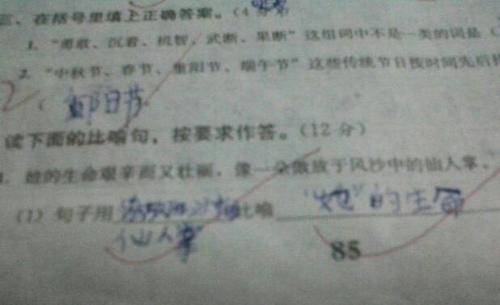 三、在括号里填上正确答案。(4分)
1. "勇敢、沉着、机智、武断、果断"这组词中不是一类的词是(
2. "中秋节、春节、重阳节、端午节"这些传统节日按时间先后
(重阳节
读下面的比喻句,按要求作答。(12分)
她的生命艰辛而又壮丽,像一朵傲放于风沙中的仙人掌。
(1) 句子用 比喻 "她"的生命
仙人掌"
85